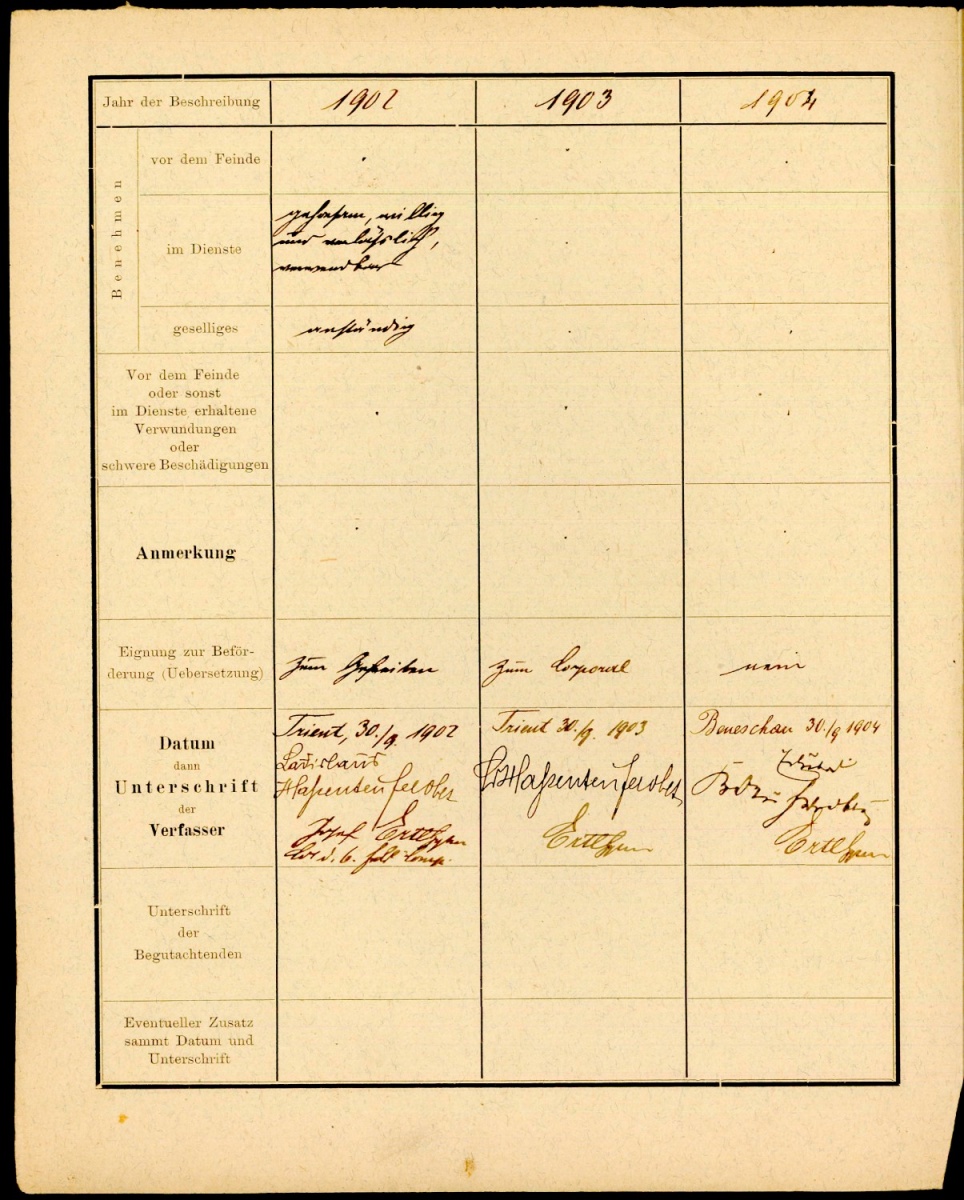 Jahr der Beschreibung 1902 1903 1904
Benehmen
vor dem Feinde
im Dienste
gehorsam, willig
und verläßslich,
verwendbar
geselliges anständig
Vor dem Feinde
oder sonst
im Dienste erhaltene
Verwundungen
oder
schwere Beschädigungen
Anmerkung
Eignung zur Beför-
derung (Uebersetzung)
zum Gefreiten zum Corporal nein
Datum
dann
Unterschrift
der
Verfasser
Trient, 30./9. 1902
Ladislaus
Haßenteufel Oblt
Josef Ertl
Trient 30./9. 1903
Haßenteufel Oblt
Ertl
Beneschau 30./9 1904
Ertl
Unterschrift
der
Begutachtenden
Eventueller Zusatz
sammt Datum und
Unterschrift